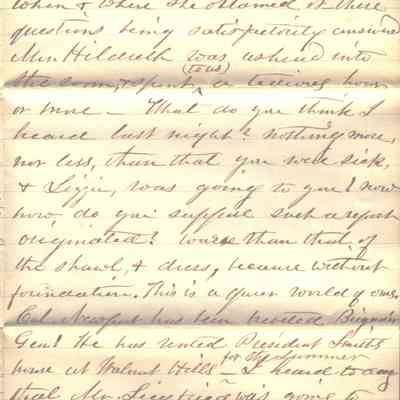 when & where she obtained it these
questions being satisfactorily answered
Mrs Hildreth was ushered into
(to us)
the room, & spent, a tedious hour
or more – What do you think I
heard last night? nothing more,
nor less, than that you were sick,
& Lizzie, was going to you! now
how do you suppose such a report
originated? worse than that, of
the shawl, & dress, because without
foundation. This is a queer world of ours
Col. has been breveted Brigadier
Genl He has rented President Smith's
for the summer
house at Walnut Hills – I heard to day
that Mr. was going to